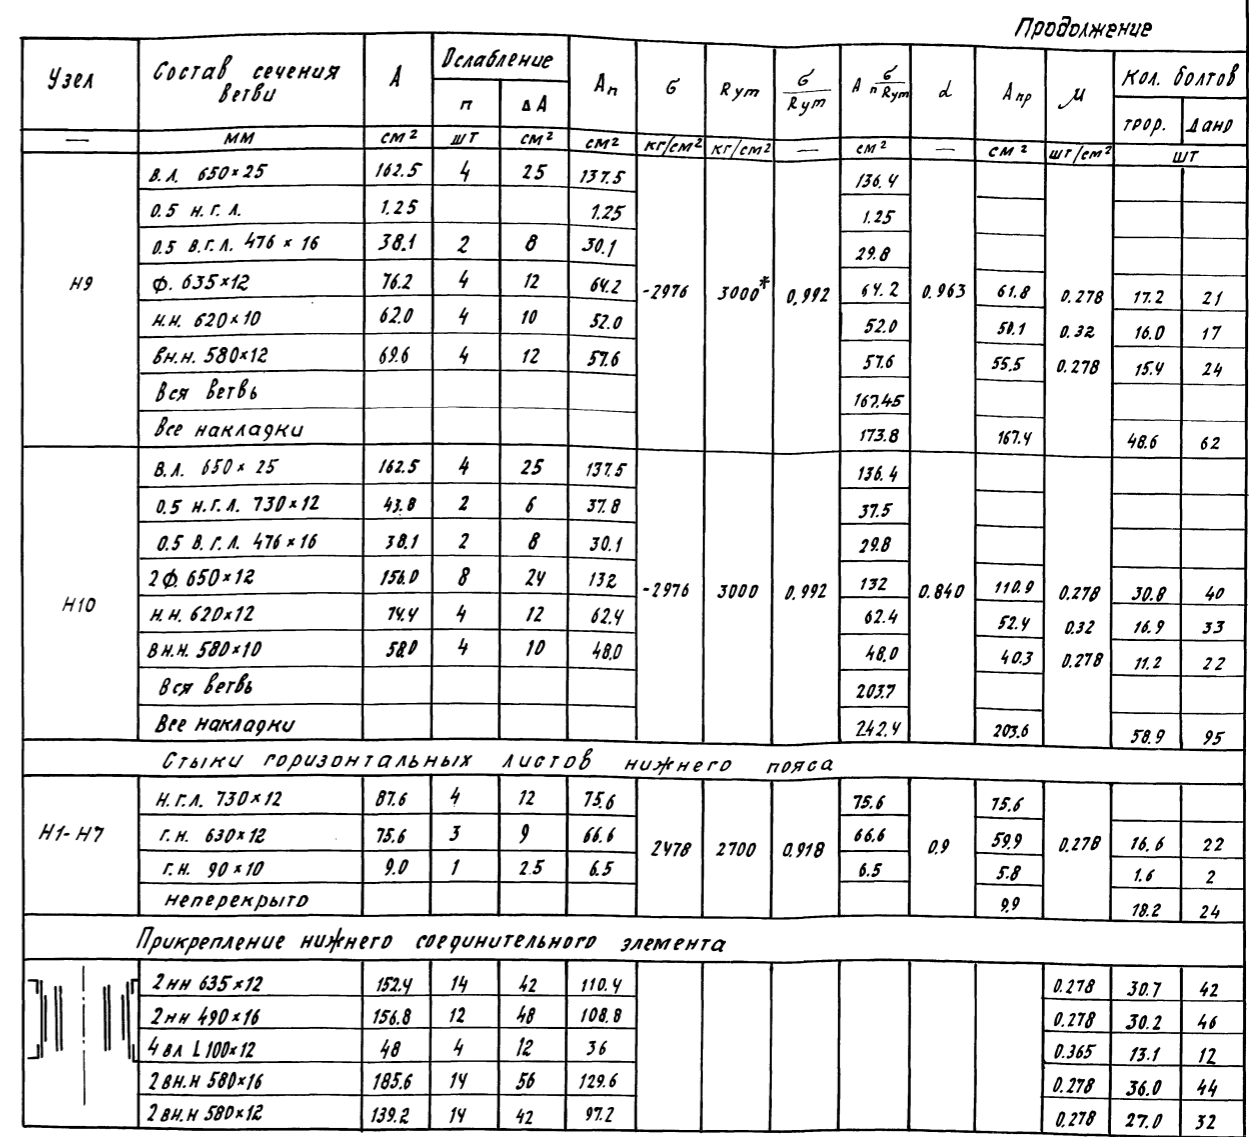 Продолжение
Узел | Состав сечения ветви | А | Ослабление | Ап | σ | Rут | σ/Rут | Ап σ/Rут | α | Апр | μ | Кол. болтов
п | ΔА | трор. | дано
— | мм | см² | шт | см² | см² | кг/см² | кг/см² | — | см² | — | см² | шт/см² | шт
Н9 | -2976 | 3000* | 0,992 | 0.963
В.Л. 650×25 | 162.5 | 4 | 25 | 137.5 | 136.4
0.5 Н.Г.Л. | 1.25 | 1.25 | 1.25
0.5 В.Г.Л. 476×16 | 38.1 | 2 | 8 | 30.1 | 29.8
Ф. 635×12 | 76.2 | 4 | 12 | 64.2 | 64.2 | 61.8 | 0.278 | 17.2 | 21
Н.Н. 620×10 | 62.0 | 4 | 10 | 52.0 | 52.0 | 50.1 | 0.32 | 16.0 | 17
Вн.н. 580×12 | 69.6 | 4 | 12 | 57.6 | 57.6 | 55.5 | 0.278 | 15.4 | 24
Вся ветвь | 167.45
Все накладки | 173.8 | 167.4 | 48.6 | 62
Н10 | -2976 | 3000 | 0.992 | 0.840
В.Л. 650×25 | 162.5 | 4 | 25 | 137.5 | 136.4
0.5 Н.Г.Л. 730×12 | 43.8 | 2 | 6 | 37.8 | 37.5
0.5 В.Г.Л. 476×16 | 38.1 | 2 | 8 | 30.1 | 29.8
2Ф. 650×12 | 156.0 | 8 | 24 | 132 | 132 | 110.9 | 0.278 | 30.8 | 40
Н.Н. 620×12 | 74.4 | 4 | 12 | 62.4 | 62.4 | 52.4 | 0.32 | 16.9 | 33
Вн.н. 580×10 | 58.0 | 4 | 10 | 48.0 | 48.0 | 40.3 | 0.278 | 11.2 | 22
Вся ветвь | 203.7
Все накладки | 242.4 | 203.6 | 58.9 | 95
Стыки горизонтальных листов нижнего пояса
Н1-Н7 | 2478 | 2700 | 0.918 | 0.9 | 0.278
Н.Г.Л. 730×12 | 87.6 | 4 | 12 | 75.6 | 75.6 | 75.6
Г.Н. 630×12 | 75.6 | 3 | 9 | 66.6 | 66.6 | 59.9 | 16.6 | 22
Г.Н. 90×10 | 9.0 | 1 | 2.5 | 6.5 | 6.5 | 5.8 | 1.6 | 2
неперекрыто | 9.9 | 18.2 | 24
Прикрепление нижнего соединительного элемента
2нн 635×12 | 152.4 | 14 | 42 | 110.4 | 0.278 | 30.7 | 42
2нн 490×16 | 156.8 | 12 | 48 | 108.8 | 0.278 | 30.2 | 46
4вл L100×12 | 48 | 4 | 12 | 36 | 0.365 | 13.1 | 12
2вн.н 580×16 | 185.6 | 14 | 56 | 129.6 | 0.278 | 36.0 | 44
2вн.н 580×12 | 139.2 | 14 | 42 | 97.2 | 0.278 | 27.0 | 32